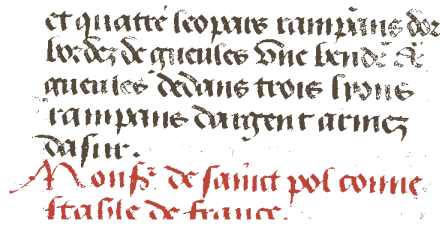 et quatre leopars rampans dor
bordez de gueules Une bende de
gueules dedans trois lyons
rampans dargent armez
dasur.
Monsr de sainct pol conne
stable de france.